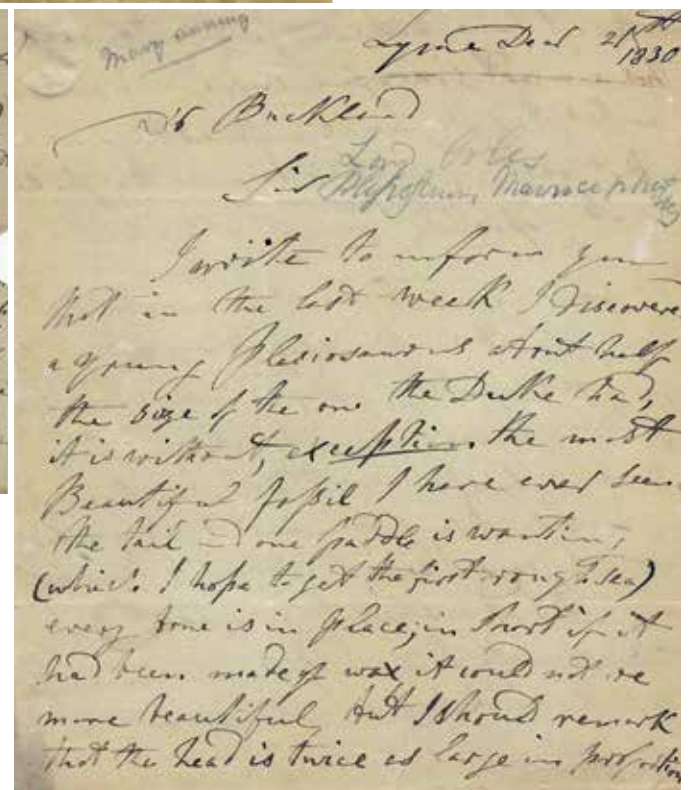 Mary Anning
Lyme Decr 21st
1830
Dr Buckland
Lord Coles
Sir Plesiosaurus Macrocephalus
I write to inform you
that in the last week I discovered
a young Plesiosaurus about half
the size of the one the Duke had,
it is without exception the most
Beautiful fossil I have ever seen.
the tail and one paddle is wanting,
(which I hope to get the first rough sea)
every bone is in place, in short if it
had been made of wax it could not be
more beautiful, but I should remark
that the head is twice as large in proportion